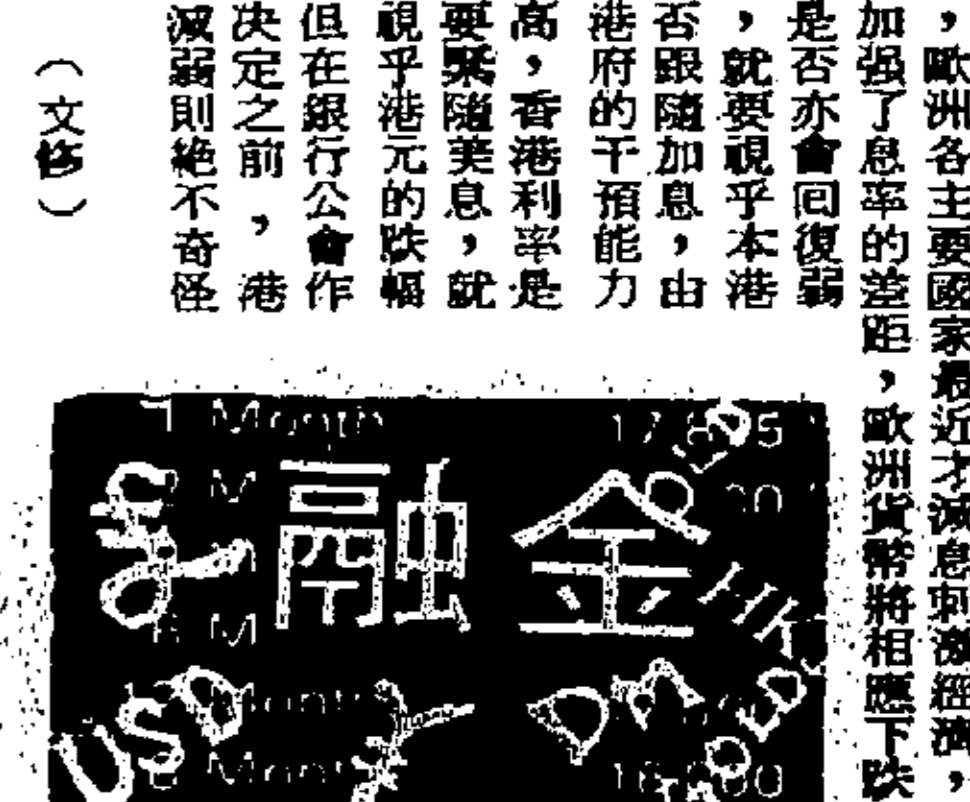 ，歐洲各主要國家最近才減息刺激經濟，
加强了息率的差距，歐洲貨幣將相應下跌
是否亦會回復弱
，就要視乎本港
否跟隨加息，由
港府的干預能力
高，香港利率是
要緊隨美息，就
視乎港元的跌幅
但在銀行公會作
决定之前，港
減弱則絶不奇怪
（文修）
金融
£
GOLD
HK
USD
DM
GOLD
Month
Month
Month